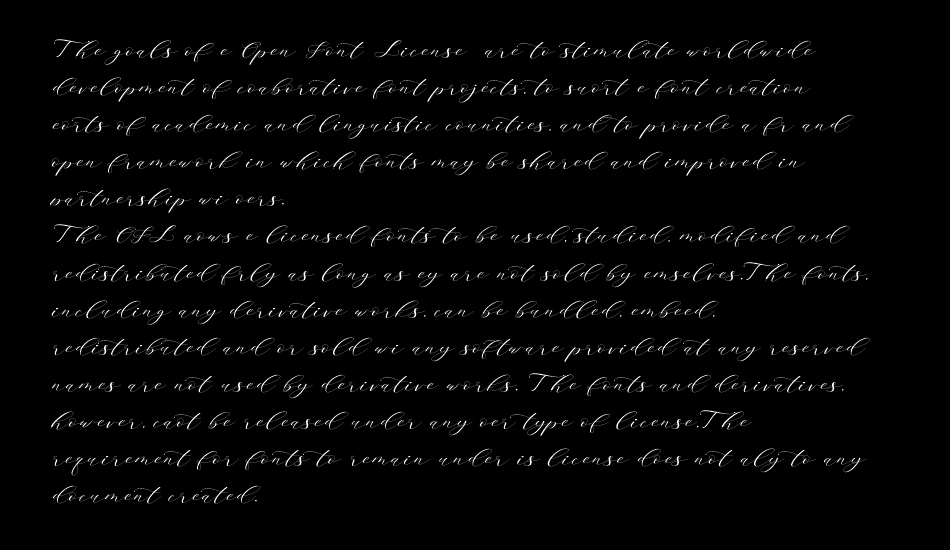 The goals of e Open Font License are to stimulate worldwide
development of coaborative font projects, to suort e font creation
eorts of academic and linguistic counities, and to provide a fr and
open framework in which fonts may be shared and improved in
partnership wi oers.
The OFL aows e licensed fonts to be used, studied, modified and
redistributed frly as long as ey are not sold by emselves.The fonts,
including any derivative works, can be bundled, embeed,
redistributed and or sold wi any software provided at any reserved
names are not used by derivative works. The fonts and derivatives,
however, caot be released under any oer type of license.The
requirement for fonts to remain under is license does not aly to any
document created.